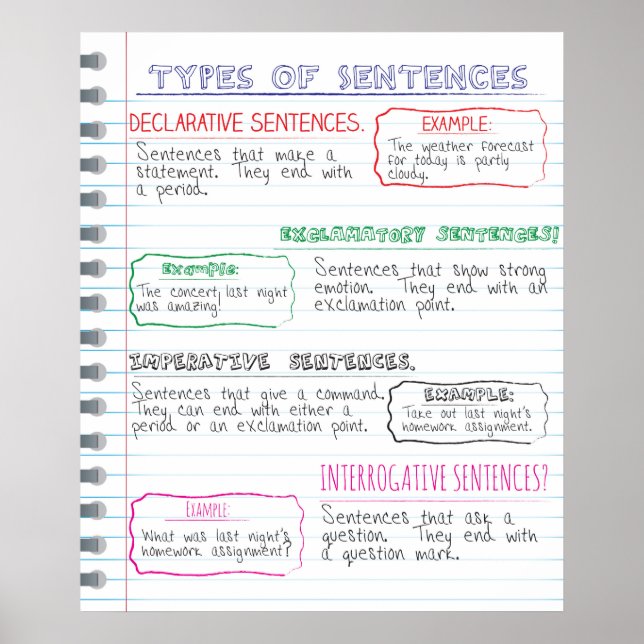 TYPES OF SENTENCES
DECLARATIVE SENTENCES.
Sentences that make a
statement. They end with
a period.
EXAMPLE:
The weather forecast
for today is partly
cloudy.
EXCLAMATORY SENTENCES!
Example:
The concert last night
was amazing!
Sentences that show strong
emotion. They end with an
exclamation point.
IMPERATIVE SENTENCES.
Sentences that give a command.
They can end with either a
period or an exclamation point.
EXAMPLE:
Take out last night's
homework assignment.
INTERROGATIVE SENTENCES?
Example:
What was last night's
homework assignment?
Sentences that ask a
question. They end with
a question mark.